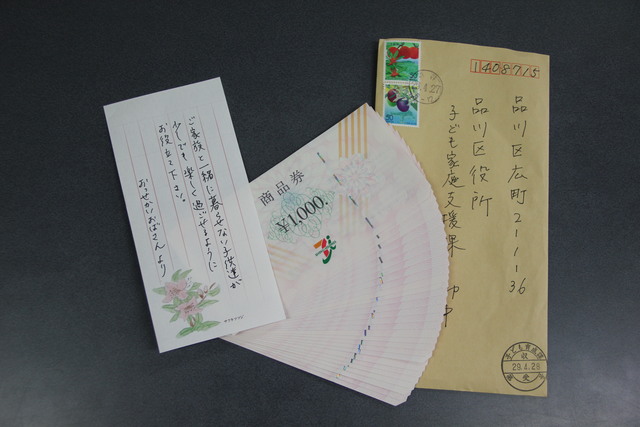 ご家族と一緒に暮らせない子供達が
少しでも楽しく過ごせるように
お役立て下さい。
おっせかいおばさんより
商品券
¥1,000.
1408715
品川区広町2-1-36
品川区役所
子ども家庭支援課
27
収
29.4.28
受